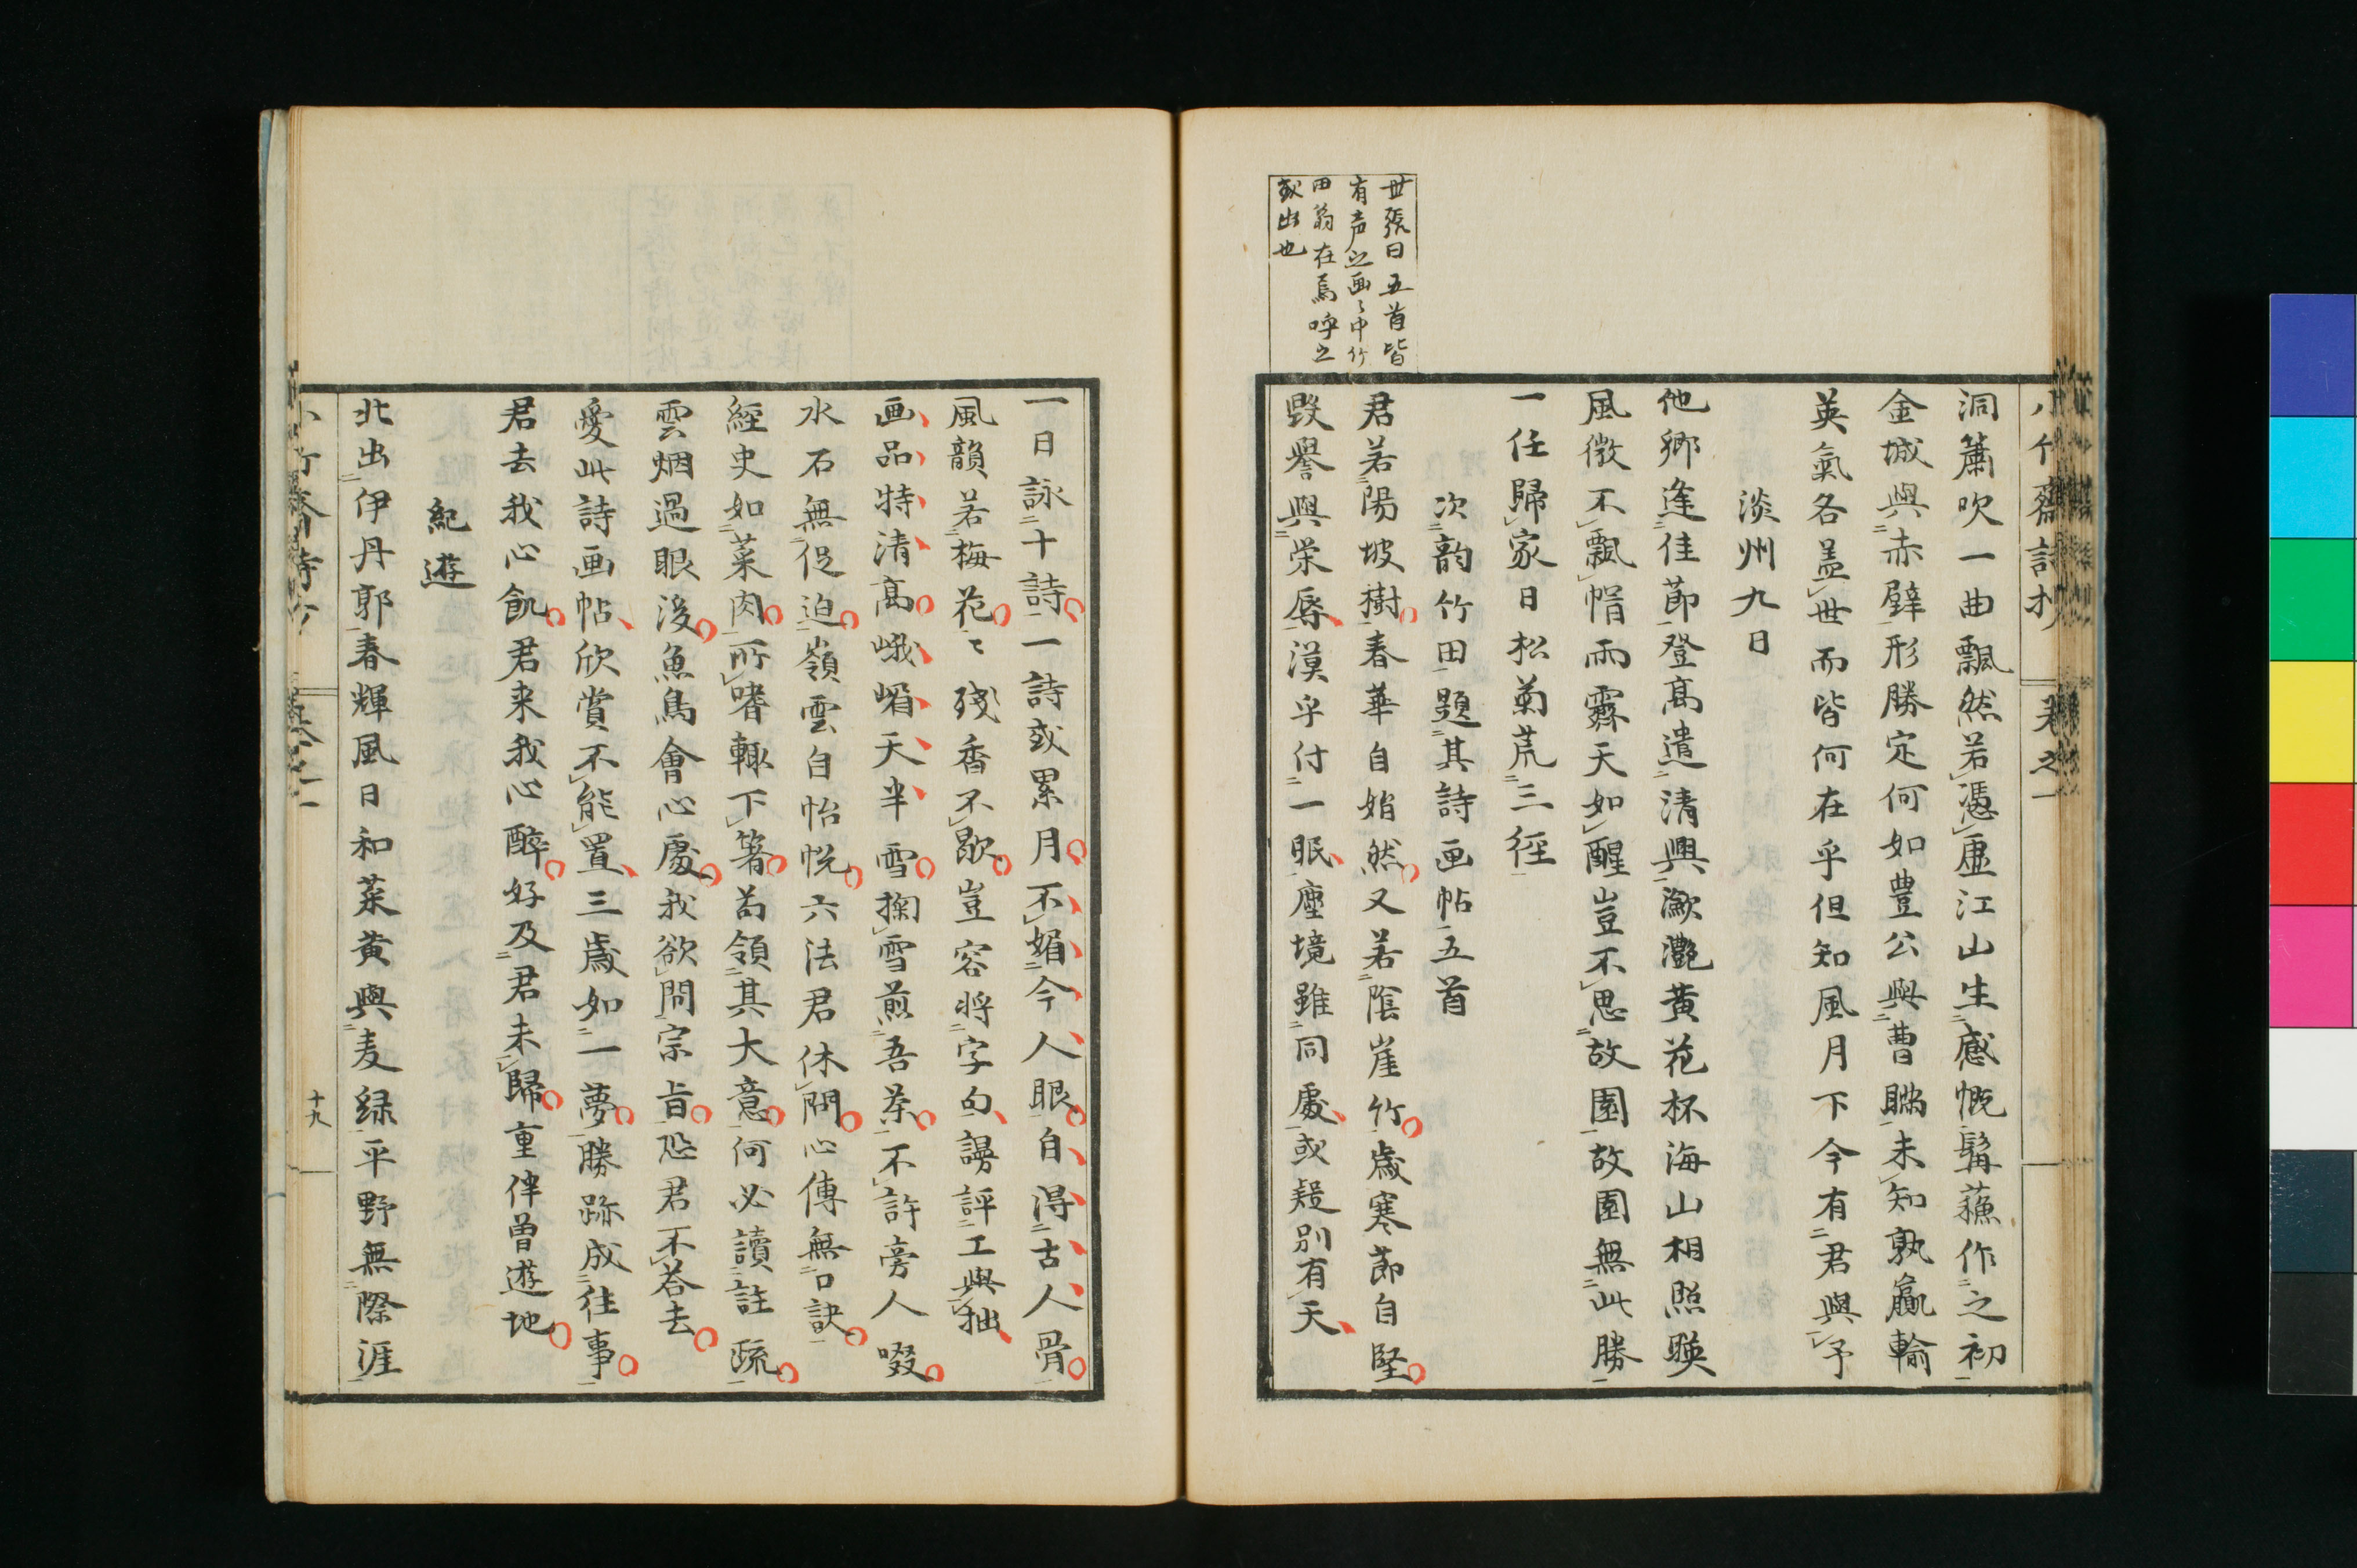 小竹齋詩抄 卷之一
洞簫吹一曲飄然若憑虛江山生感慨髯蘓作之初
金城與赤壁形勝定何如豊公與曹瞞未知孰贏輸
英氣各盖世而皆何在乎但知風月下今有君與予
淡州九日
他鄉逢佳節登髙遣清興瀲灧黄花杯海山相照暎
風微不飄帽雨霽天如醒豈不思故園故園無此勝
一任歸家日松菊荒三徑
次韵竹田題其詩画帖五首
君若陽坡樹春華自始然又若陰崖竹歳寒節自堅
毀譽與栄辱漠乎付一眠塵境雖同處或疑別有天
世張曰五首皆
有声之画〻中竹
田翁在焉呼之
或出也
一日詠十詩一詩或累月不媚今人眼自得古人骨
風韻若梅花〻残香不歇豈容將字句謾評工與拙
画品特清髙峨嵋天半雪掬雪煎吾茶不許旁人啜
水石無促迫嶺雲自怡悦六法君休問心傳無口訣
經史如菜肉所嗜輙下箸苟領其大意何必讀註疏
雲烟過眼後魚鳥會心處我欲問宗旨恐君不荅去
愛此詩画帖欣賞不能置三歳如一夢勝跡成往事
君去我心飢君来我心醉好及君未歸重伴曽遊地
紀遊
北出伊丹郭春輝風日和菜黄與麦緑平野無際涯
十九